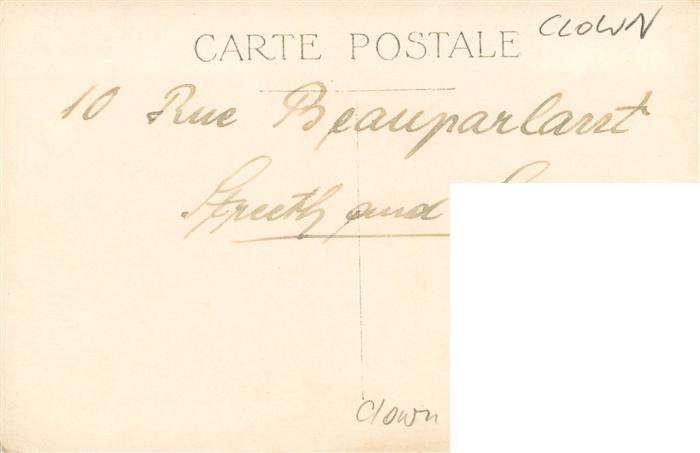 CARTE POSTALE CLOWN
10 Rue Beauparlant
and
Clown